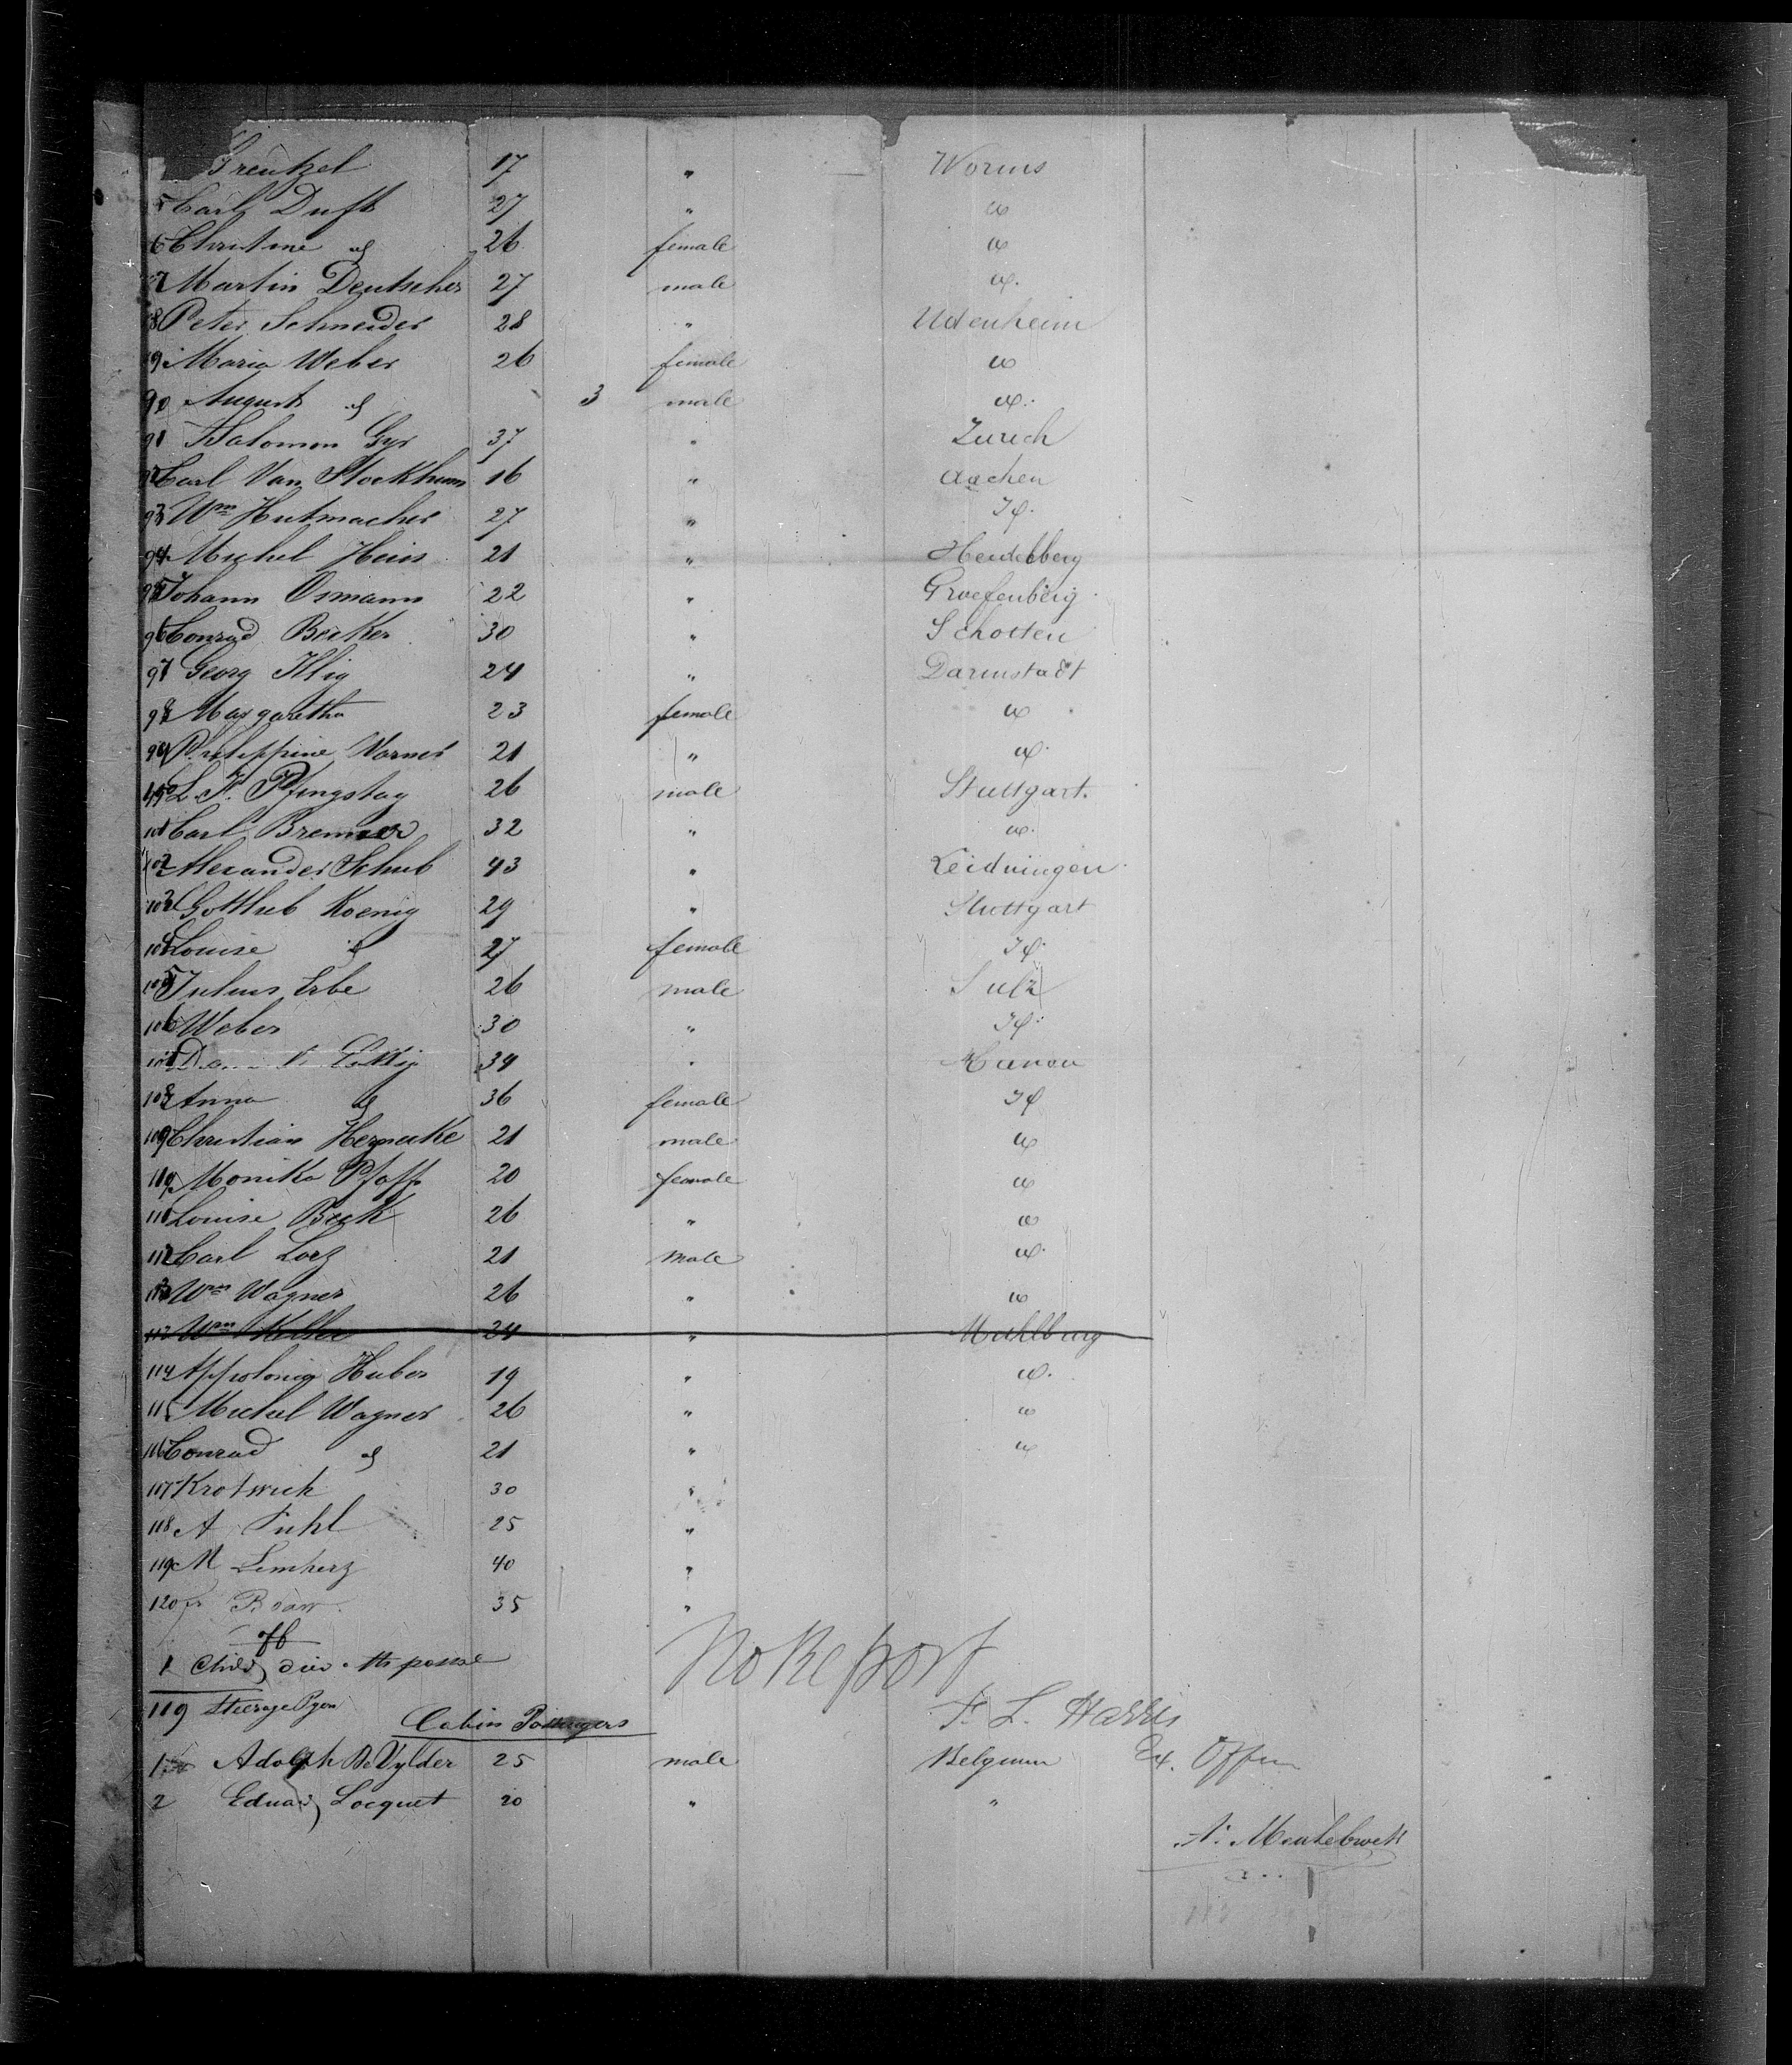 Frentzel 17 " Worms
5 Carl Duft 27 " "
6 Christine id 26 female id
7 Martin Deutscher 27 male id.
8 Peter Schneider 28 " Udenheim
9 Maria Weber 26 female id
90 August id 3 male id.
91 Salomon Gyr 37 " Zurich
92 Carl Van Stockhum 16 " Aachen
93 Wm Hutmacher 27 " Id.
94 Michel Heiss 21 " Heidelberg
95 Johann Osmann 22 " Groefenberg
96 Conrad Becker 30 " Schotten
97 Georg Illig 24 " Darmstadt
98 Margaretha 23 female id
99 Philippine Varner 21 " id.
100 L. F. Pfingstag 26 male Stuttgart.
101 Carl Brenner 32 " id.
102 Alexander Schub 43 " Leidringen
103 Gottlieb Koenig 29 " Stuttgart
104 Louise id 27 female Id.
105 Julius Erbe 26 male Sulz
106 Weber 30 " Id.
107 34 "
108 Anna id 36 female Id
109 Christian 21 male id
110 Monika Pfaff 20 female id
111 Louise Beck 26 " id
112 Carl Lorz 21 male id.
113 Wm Wagner 26 " id
112 Wm Keller 24 " Muhlburg
114 Appolonia Huber 19 " id.
115 Michel Wagner 26 " id
116 Conrad id 21 " id
117 Krotwich 30 "
118 A Fuhl 25 "
119 M Lemherz 40 "
120 35 "
off
1 Child died
No Report
119 Steerage
Cabin Passengers
F. L. Harris
1 Adolph De Vylder 25 male Belgium Ex. Officer
2 Eduard Locquet 20 " "